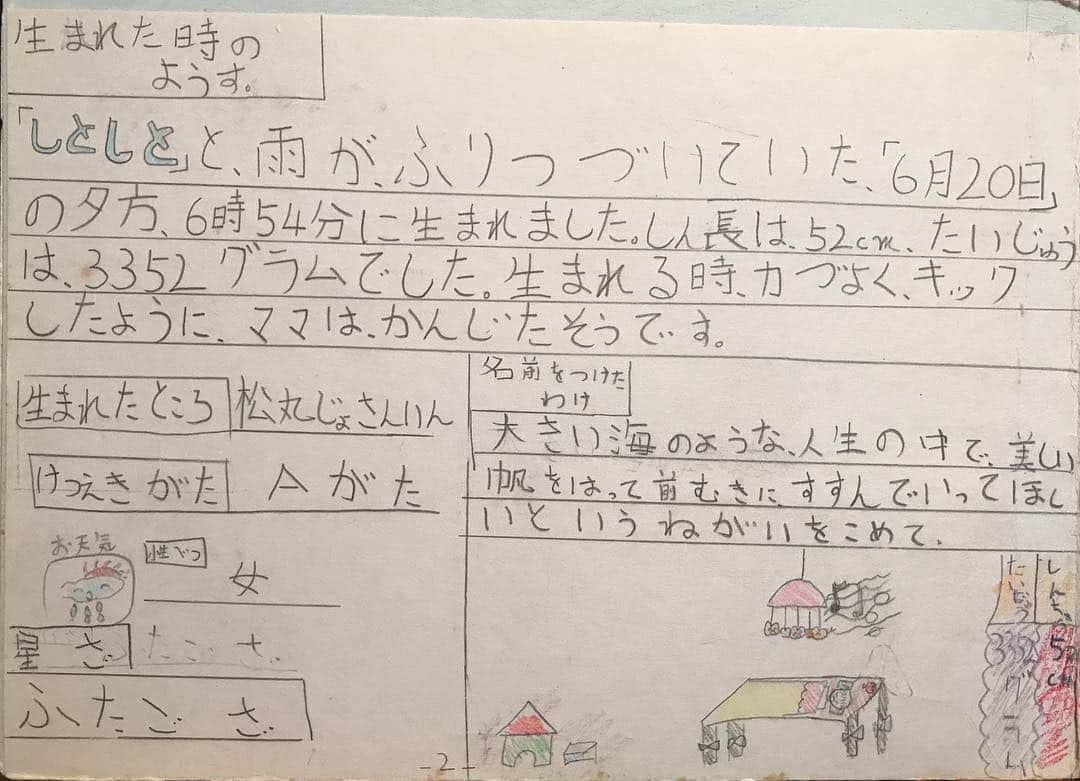 生まれた時の
ようす。
「しとしと」と、雨が、ふりつづいていた、「6月20日」
の夕方、6時54分に生まれました。しん長は、52cm、たいじゅう
は、3352グラムでした。生まれる時、力づよく、キック
したように、ママは、かんじたそうです。
生まれたところ 松丸じょさんいん
けつえきがた Aがた
お天気
性べつ 女
星ざ
ふたござ
名前をつけた
わけ
大きい海のような、人生の中で、美しい
帆をはって前むきに、すすんでいってほし
いというねがいをこめて。
しんちょう
52cm
たいじゅう
3352グラム
-2-